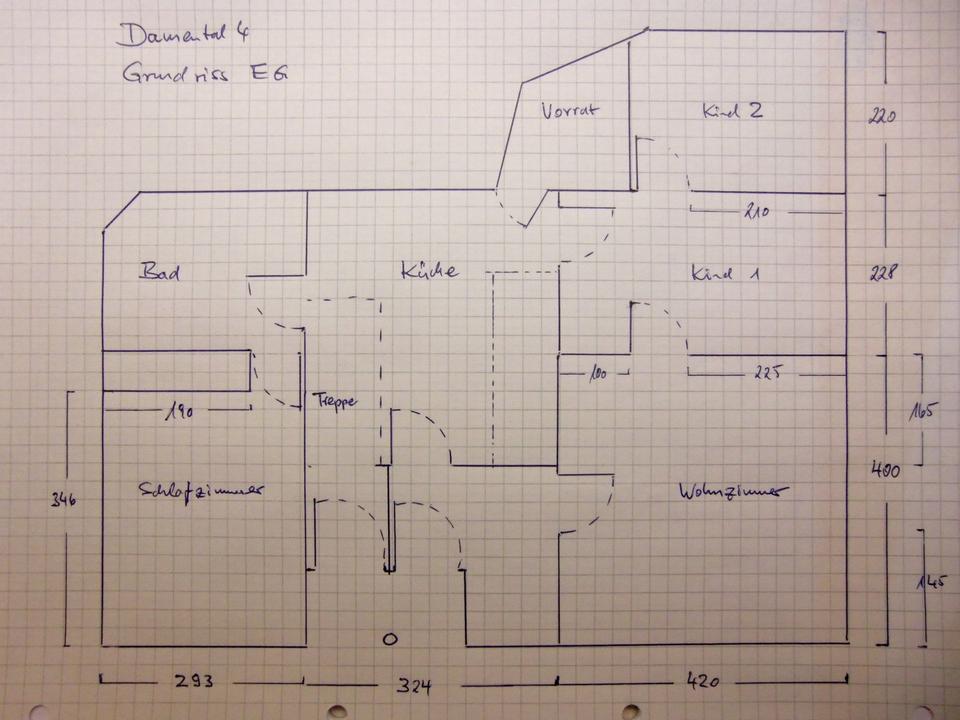 Damental 4
Grundriss EG
Vorrat
Kind 2
220
210
Bad
Küche
Kind 1
228
100
225
190
Treppe
165
346
Schlafzimmer
Wohnzimmer
400
145
293
324
420